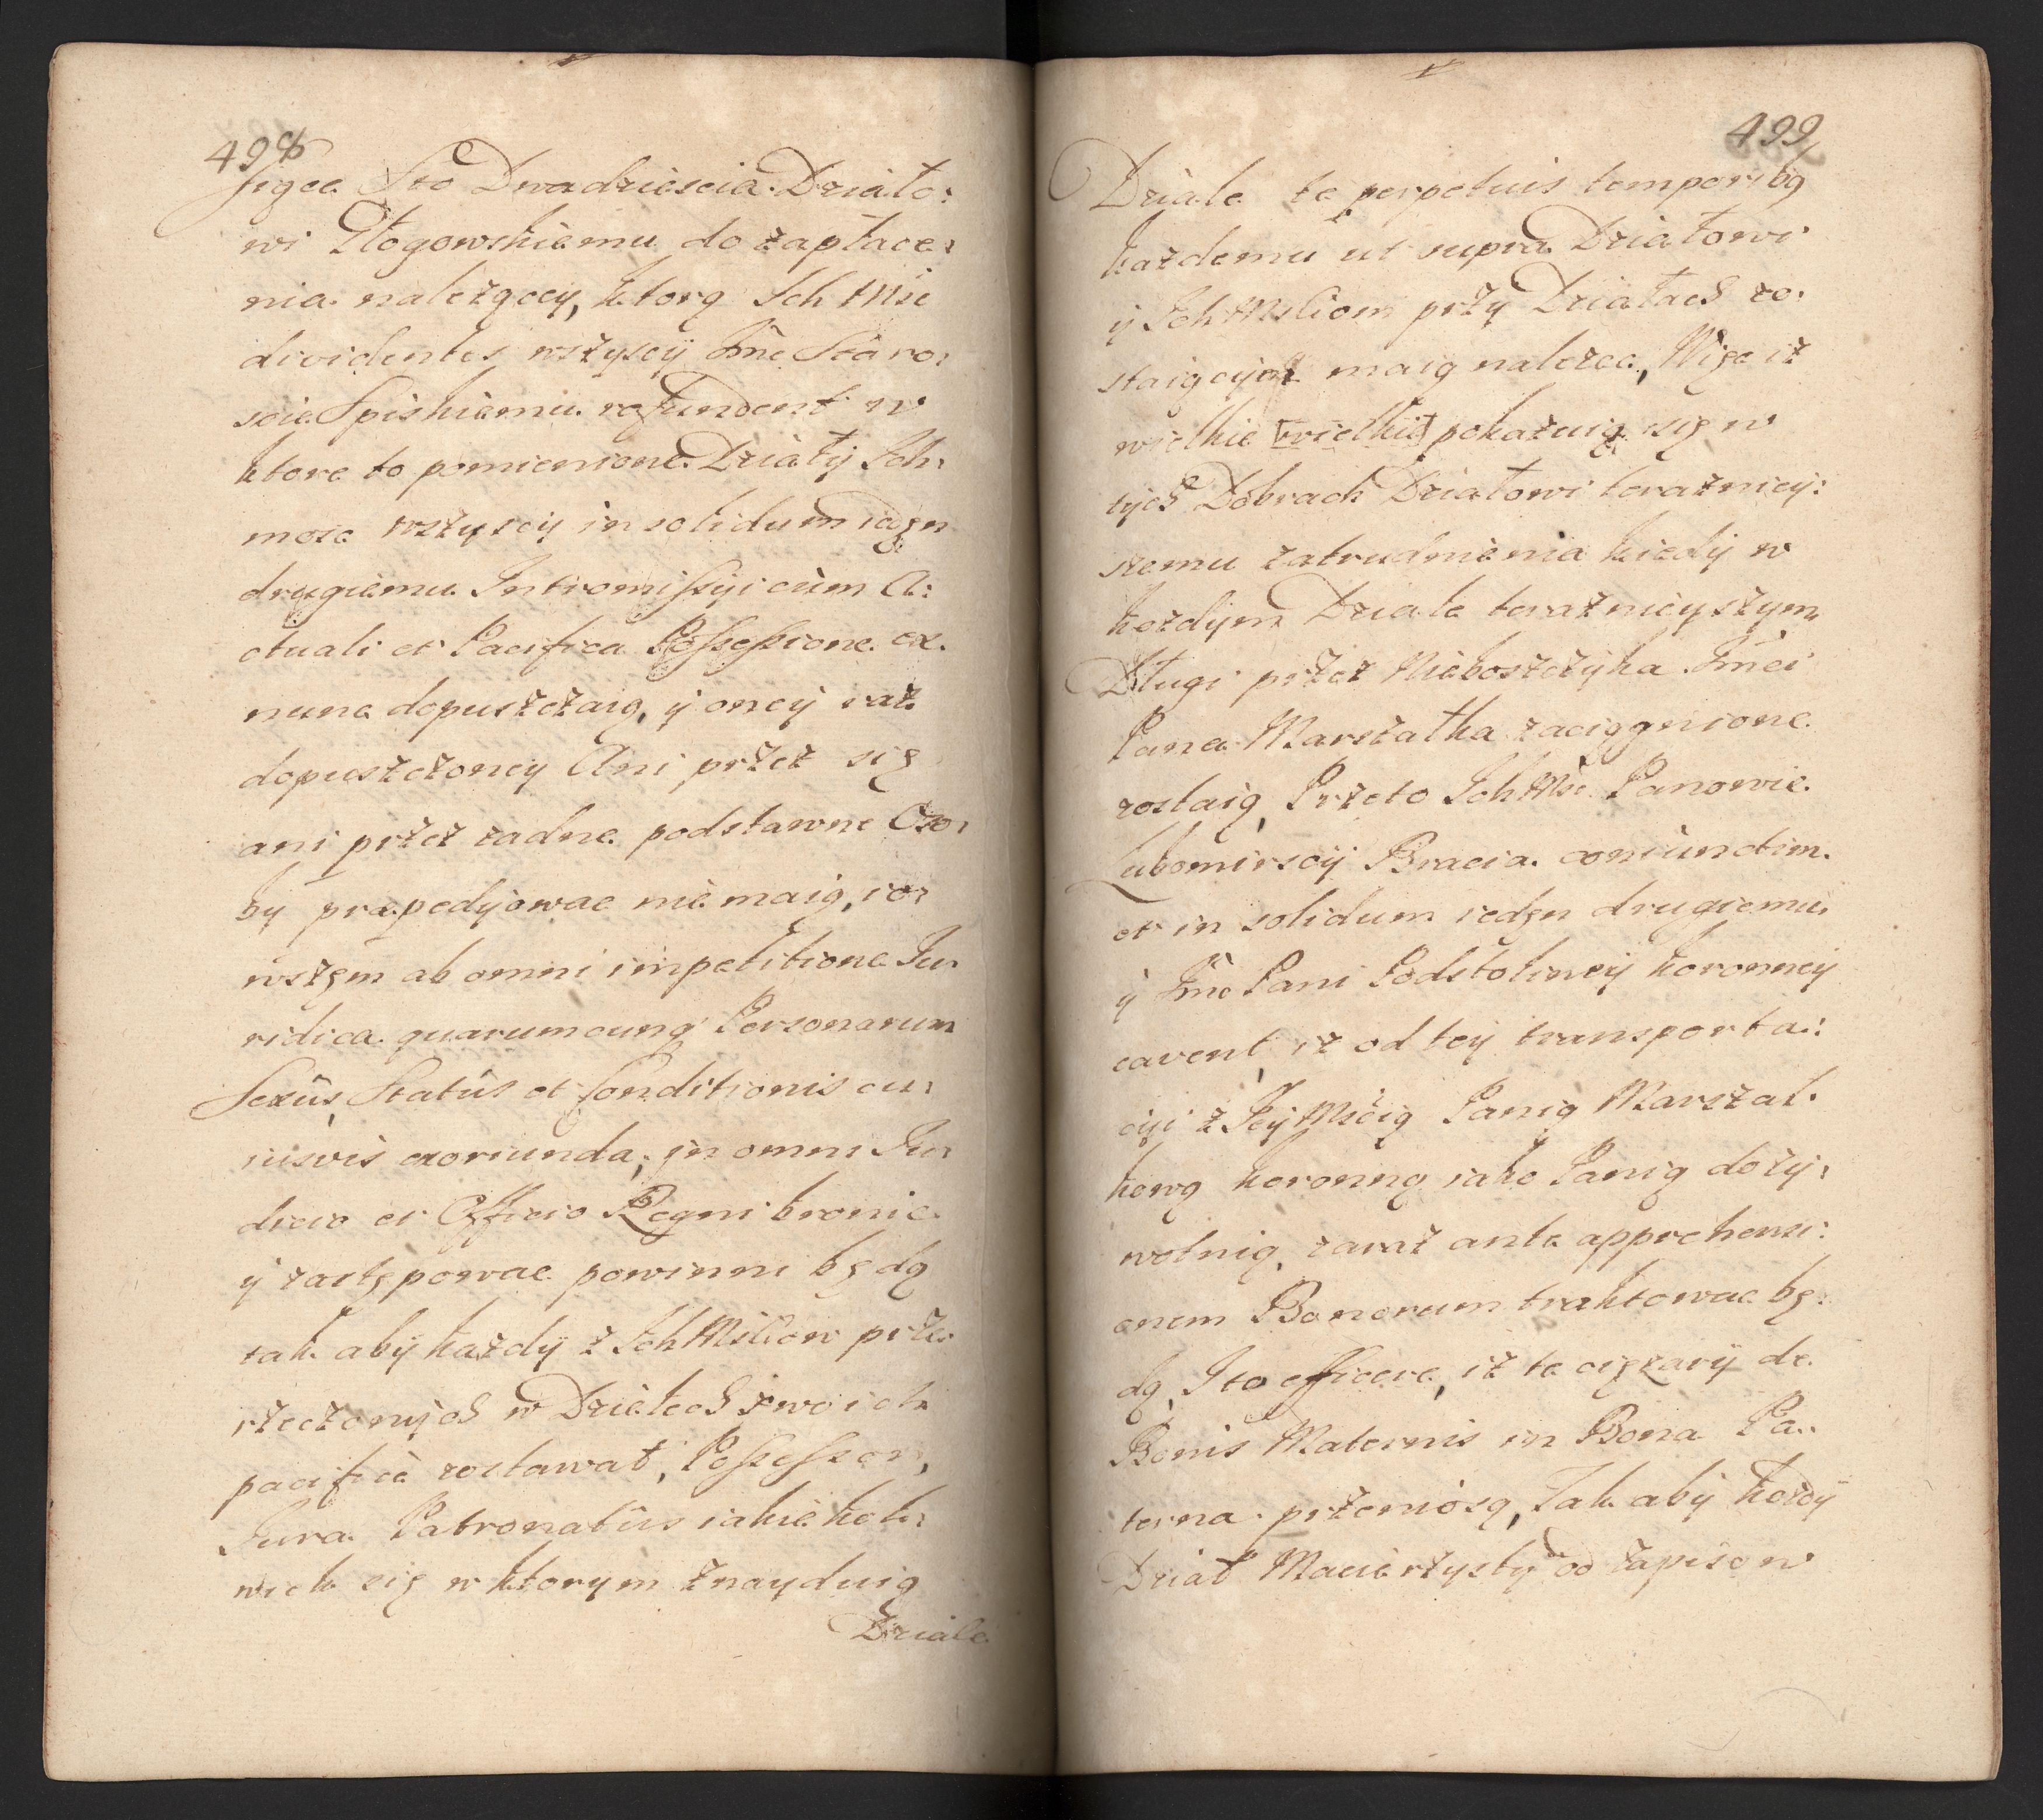 498
siące Sto Dwadziescia Działo:
wi Głogowskiemu do zapłace:
nia należącey, ktorą Ich Mśe
dividentes wszyscy Jmć Staro:
scie Spiskiemu refundent w
ktore to pomienione Działy Ich:
mosc wszyscy in solidum ieden
drugiemu Intromissyi cum A:
ctuali et Pacifica Possessione ex
nunc dopuszczaią, y oney raz
dopuszczoney Ani przez się
ani przez zadne podstawne Oso:
by præpedyowac nie maią, io:
wszem ab omni impetitione Ju:
ridica quarumcunq Personarum
Sexûs, Statûs et Conditionis cu:
iusvis exoriunda, in omni Ju:
dicio et Officio Regni bronic
y zastępowac powinni będą
tak aby każdy z Ich Mściow prze
rzeczonych w Działach swoich
pacificè zostawał, Possessor,
Jura Patronatûs iakiekol:
wiek się w ktorym znayduią
Dziale
499
Dziale te perpetuis temporibq
każdemu ut supra Działowi
y Ich Msciom przy Działach zo:
staiącym maią należec, Więc iż
wielkie [wielkie] pokazuią się w
tych Dobrach Działowi terazniey:
szemu zatrudnienia kiedy w
każdym Dziale teraznieyszym
Długi przez Nieboszczyka Jmci
Pana Marszałka zaciągnione
zostaią, Przeto Ich Mśc Panowie
Lubomirscy Bracia coniunctim
et in solidum ieden drugiemu
y Jmć Pani Podstoliney koronney
cavent, iż od tey transporta:
cyi z Jey Mścią Panią Marszał:
kową koronną iako Panią doży:
wotnią, zaraz ante apprehensi:
onem Bonorum traktowac bę:
dą, I to efficere, iż te ciężary de
Bonis Maternis in Bona Pa:
terna przeniosą, Tak aby każdy
Dział Macierzysty od zapisow